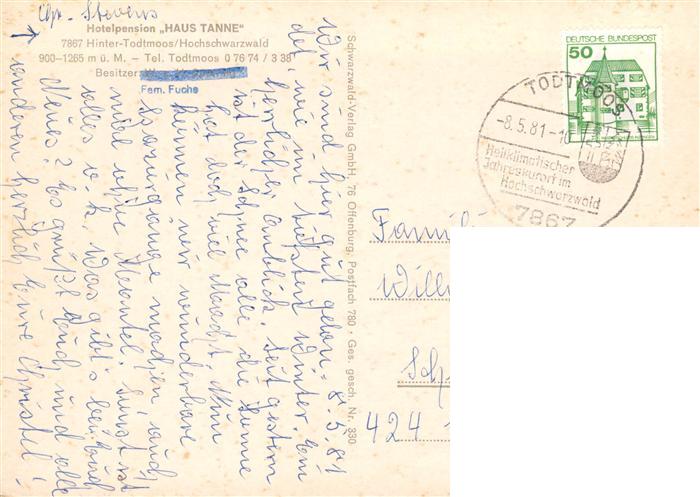 Chr. Stevens
Hotelpension „HAUS TANNE"
7867 Hinter-Todtmoos/Hochschwarzwald
900–1265 m ü. M. – Tel. Todtmoos 0 76 74 / 3 38
Besitzer:
Fam. Fuchs
8.5.81
Wir sind hier gut gelan-
det, wie im tiefsten Winter. Ein
herrlicher Anblick. Seit gestern
ist der Schnee alle, die Sonne
hat doch viel Macht. Nun
können wir wunderbare
Spaziergänge machen, auch
mal ohne Mantel. Sonst ist
alles o. k. Was gibt's bei Euch
Neues? Es grüßt Euch und alle
anderen herzlich Eure Christel
Schwarzwald-Verlag GmbH, 76 Offenburg, Postfach 780 · Ges. gesch. Nr. 330
DEUTSCHE BUNDESPOST
50
TODTMOOS
-8.5.81-10
Heilklimatischer
Jahreskurort im
Hochschwarzwald
7867
Famili
Will
Sch
424